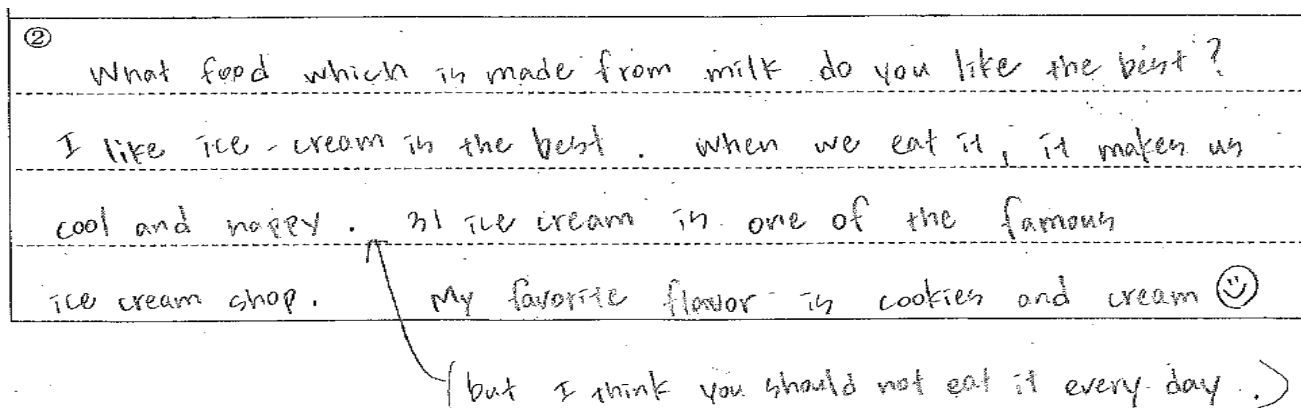 ②
What food which is made from milk do you like the best?
I like ice-cream is the best. When we eat it, it makes us
cool and happy. 31 ice cream is one of the famous
ice cream shop. My favorite flavor is cookies and cream ☺
(but I think you should not eat it every day.)